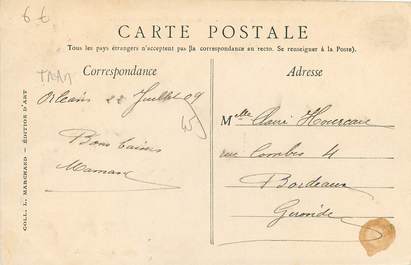 6 €
CARTE POSTALE
Tous les pays étrangers n'acceptent pas la correspondance au recto. Se renseigner à la Poste).
Correspondance
Adresse
TRAM
Orléans 22 Juillet 09
Bons baisers
Maman
Melle Claire Hourcau
rue Combes 4
Bordeaux
Gironde
COLL. L. MARCHAND — ÉDITION D'ART